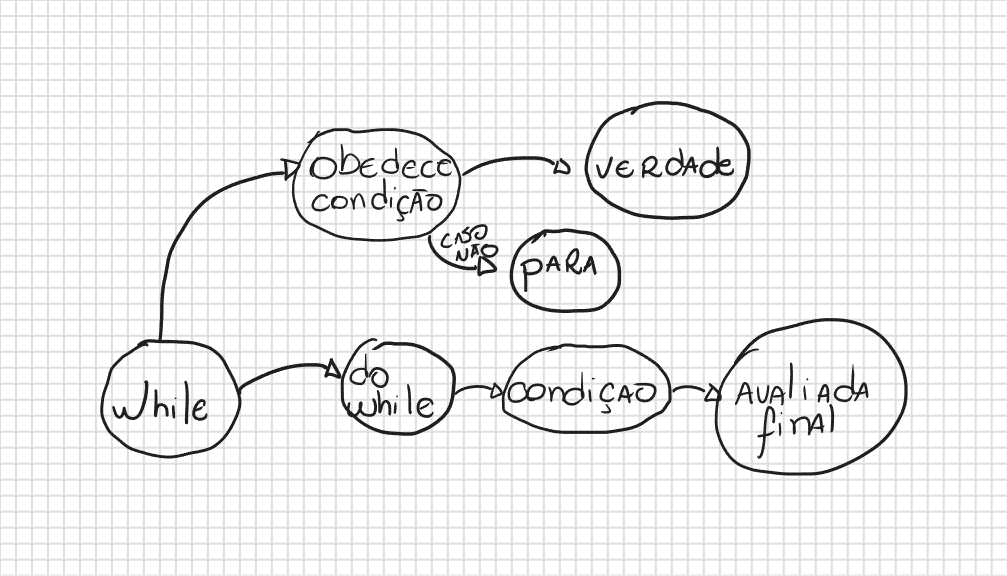 obedece
condição
VERDADE
CASO
NÃO
PARA
while
do
while
condiçao
AVALIADA
final